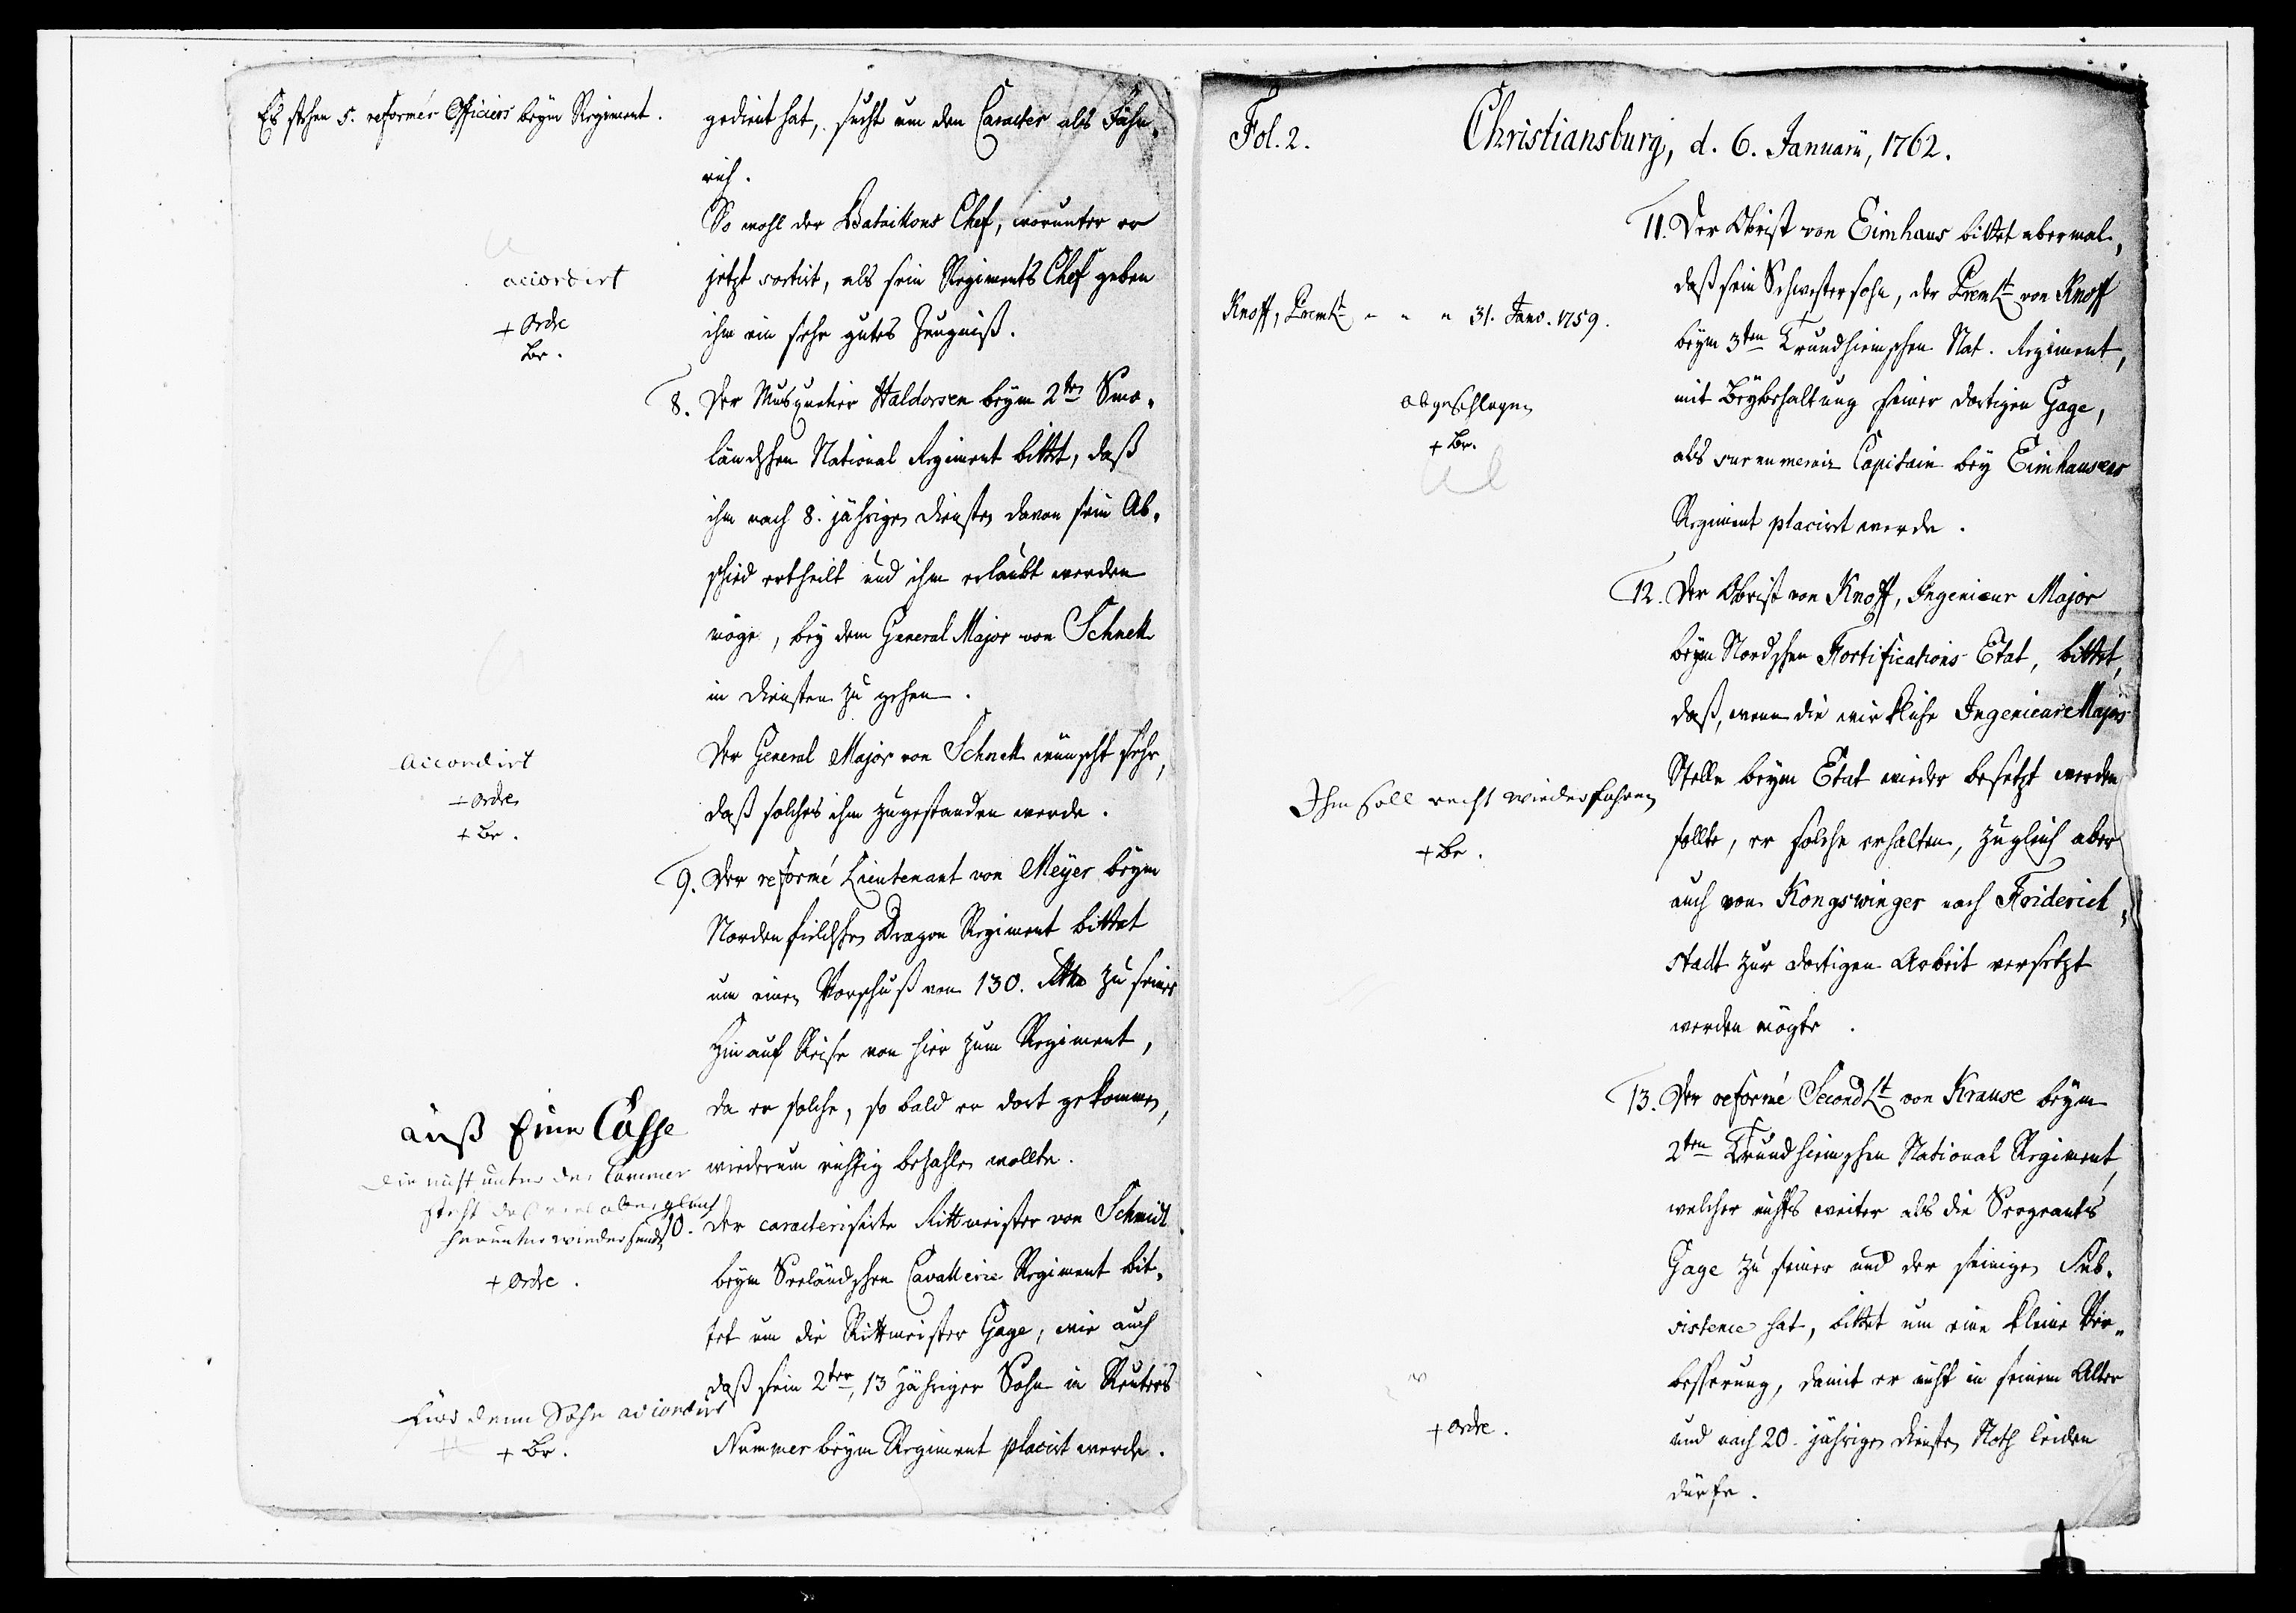 Es stehen 5. reformér Officiers beym Regiment.
accordirt
+ Ordre
Br.
Accordirt
+ Ordre
+ Br.
auß Eine Casse
die nicht unter der Cammer
steht
herunter wieder
+ Ordre.
Für denn Sohn accordirt
+ Br.
gedient hat, sucht um den Caracter als Fähn-
rich.
So wohl der Bataillons Chef, worunter er
jetzt sortirt, als sein Regiments Chef geben
ihm ein sehr gutes Zeugniß.
8. Der Musquetier Haldorsen beym 2ten Smo-
länschen National Regiment bittet, daß
ihm nach 8. jährigen Diensten davon sein Ab-
schied ertheilt und ihm erlaubt werden
möge, bey dem General Major von Schnell
in Diensten zu gehen.
Der General Major von Schnell wünscht sehr,
daß solches ihm zugestanden werde.
9. Der reformé Lieutenant von Meyer beym
Nordenfieldschen Dragon Regiment bittet
um einen Vorschuß von 130. Rthlr zu seiner
Hinauf Reise von hier zum Regiment,
da er solche, so bald er dort gekommen,
wiederum richtig bezahlen wollte.
10. Der caracterisirte Rittmeister von Schmidt
beym Seeländschen Cavallerie Regiment bit-
tet um die Rittmeister Gage, wie auch
daß sein 2ter, 13 jähriger Sohn in Reuters
Nummer beym Regiment placirt werde.
Fol. 2. Christiansburg, d. 6. Januarii, 1762.
Knoff, PremLt - - - 31. Janv. 1759.
abgeschlagen
+ Br.
Ihm soll recht wiederfahren
+ Br.
+ Ordre.
11. Der Obrist von Eimhaus bittet abermal,
daß sein Schwestersohn, der PremLt von Knoff
beym 3ten Trundhiemschen Nat. Regiment,
mit Beybehaltung seiner dortigen Gage,
als surnumerair Capitain bey Eimhausens
Regiment placirt werde.
12. Der Obrist von Knoff, Ingenieur Major
beym Nordschen Fortifications Etat, bittet,
daß, wenn die wirkliche Ingenieur Majors
Stelle beym Etat wieder besetzt werden
sollte, er solche erhalten, zugleich aber
auch von Kongswinger nach Friderich-
stadt zur dortigen Arbeit versetzt
werden mögte.
13. Der reformé SecondLt von Krause beym
2ten Trundhiemschen National Regiment,
welcher nichts weiter als die Sergeants
Gage zu seiner und der seinigen Sub-
sistence hat, bittet um eine kleine Ver-
besserung, damit er nicht in seinem Alter
und nach 20. jährigen Diensten Noth leiden
dürfe.